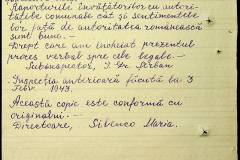 Raporturile învățătorilor cu autori-
tățile comunale cât și sentimentele
lor față de autoritatea românească
sunt bune.—
Drept care am încheiat prezentul
proces verbal spre cele legale.—
Subinspector, I. Gr. Șerban
Inspecția anterioară făcută la 3
Febr. 1943.
Această copie este conformă cu
originalul.—
Directoare, Silvenco Maria.